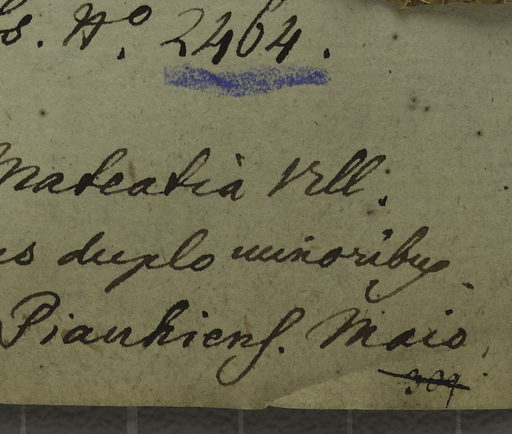 s. No. 2464.
Mateatia Vill.
us duplo minoribus.
Piauhiens. Maio.
309